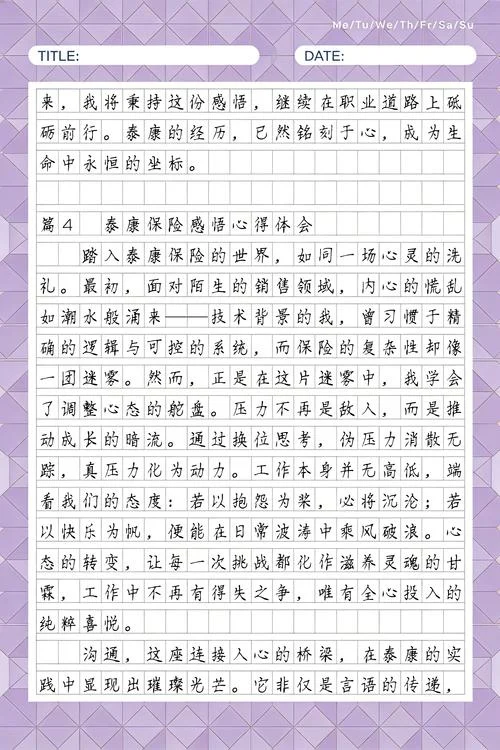 Me/Tu/We/Th/Fr/Sa/Su
TITLE: DATE:
来，我将秉持这份感悟，继续在职业道路上砥
砺前行。泰康的经历，已然铭刻于心，成为生
命中永恒的坐标。
篇4 泰康保险感悟心得体会
踏入泰康保险的世界，如同一场心灵的洗
礼。最初，面对陌生的销售领域，内心的慌乱
如潮水般涌来——技术背景的我，曾习惯于精
确的逻辑与可控的系统，而保险的复杂性却像
一团迷雾。然而，正是在这片迷雾中，我学会
了调整心态的舵盘。压力不再是敌人，而是推
动成长的暗流。通过换位思考，伪压力消散无
踪，真压力化为动力。工作本身并无高低，端
看我们的态度：若以抱怨为桨，必将沉沦；若
以快乐为帆，便能在日常波涛中乘风破浪。心
态的转变，让每一次挑战都化作滋养灵魂的甘
霖，工作中不再有得失之争，唯有全心投入的
纯粹喜悦。
沟通，这座连接人心的桥梁，在泰康的实
践中显现出璀璨光芒。它非仅是言语的传递，